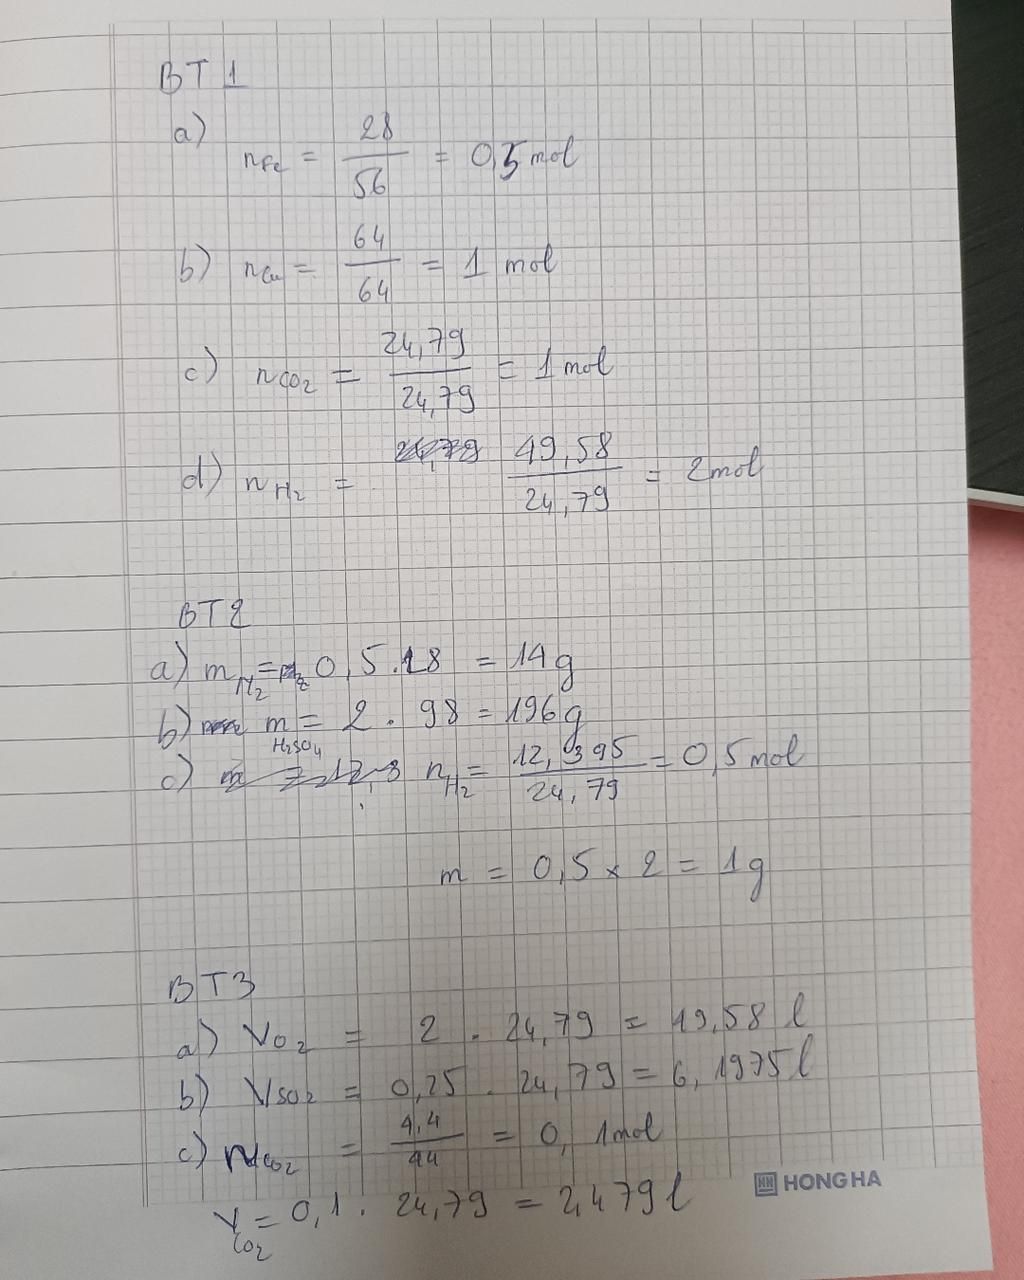 BT 1
a) nFe = 28/56 = 0,5 mol
b) nCu = 64/64 = 1 mol
c) nCO2 = 24,79/24,79 = 1 mol
d) nH2 = 49,58/24,79 = 2 mol
BT2
a) mN2 = 0,5.28 = 14g
b) mH2SO4 = 2 . 98 = 196g
c) nH2 = 12,395/24,79 = 0,5 mol
m = 0,5 x 2 = 1g
BT3
a) VO2 = 2 . 24,79 = 49,58 l
b) VSO2 = 0,25 . 24,79 = 6,1975 l
c) nCO2 = 4,4/44 = 0,1mol
VCO2 = 0,1 . 24,79 = 2,479 l
HONG HA